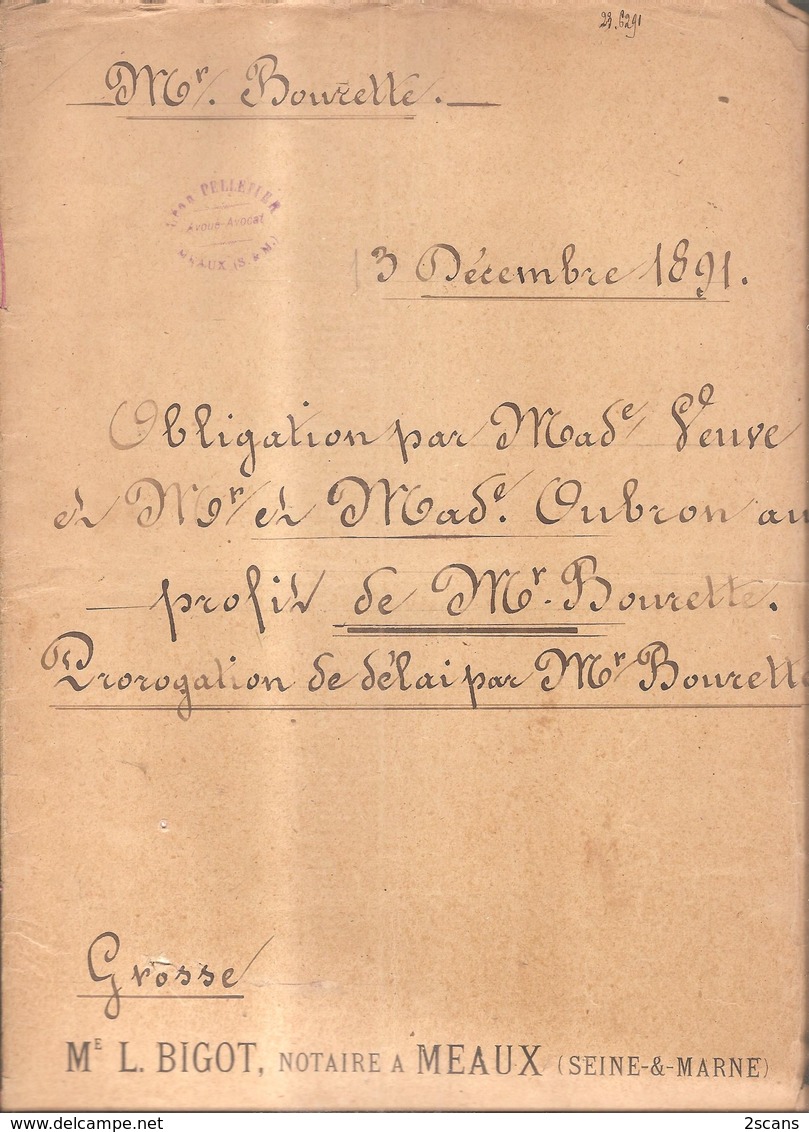 23.6291
Mr. Bourette.
Léon PELLETIER
Avoué-Avocat
MEAUX (S. & M.)
13 Décembre 1891.
Obligation par Made Veuve
et Mr et Made. Oubron au
profit de Mr. Bourette.
Prorogation de délai par Mr Bourette
Grosse
ME L. BIGOT, NOTAIRE A MEAUX (SEINE-&-MARNE)
2scans